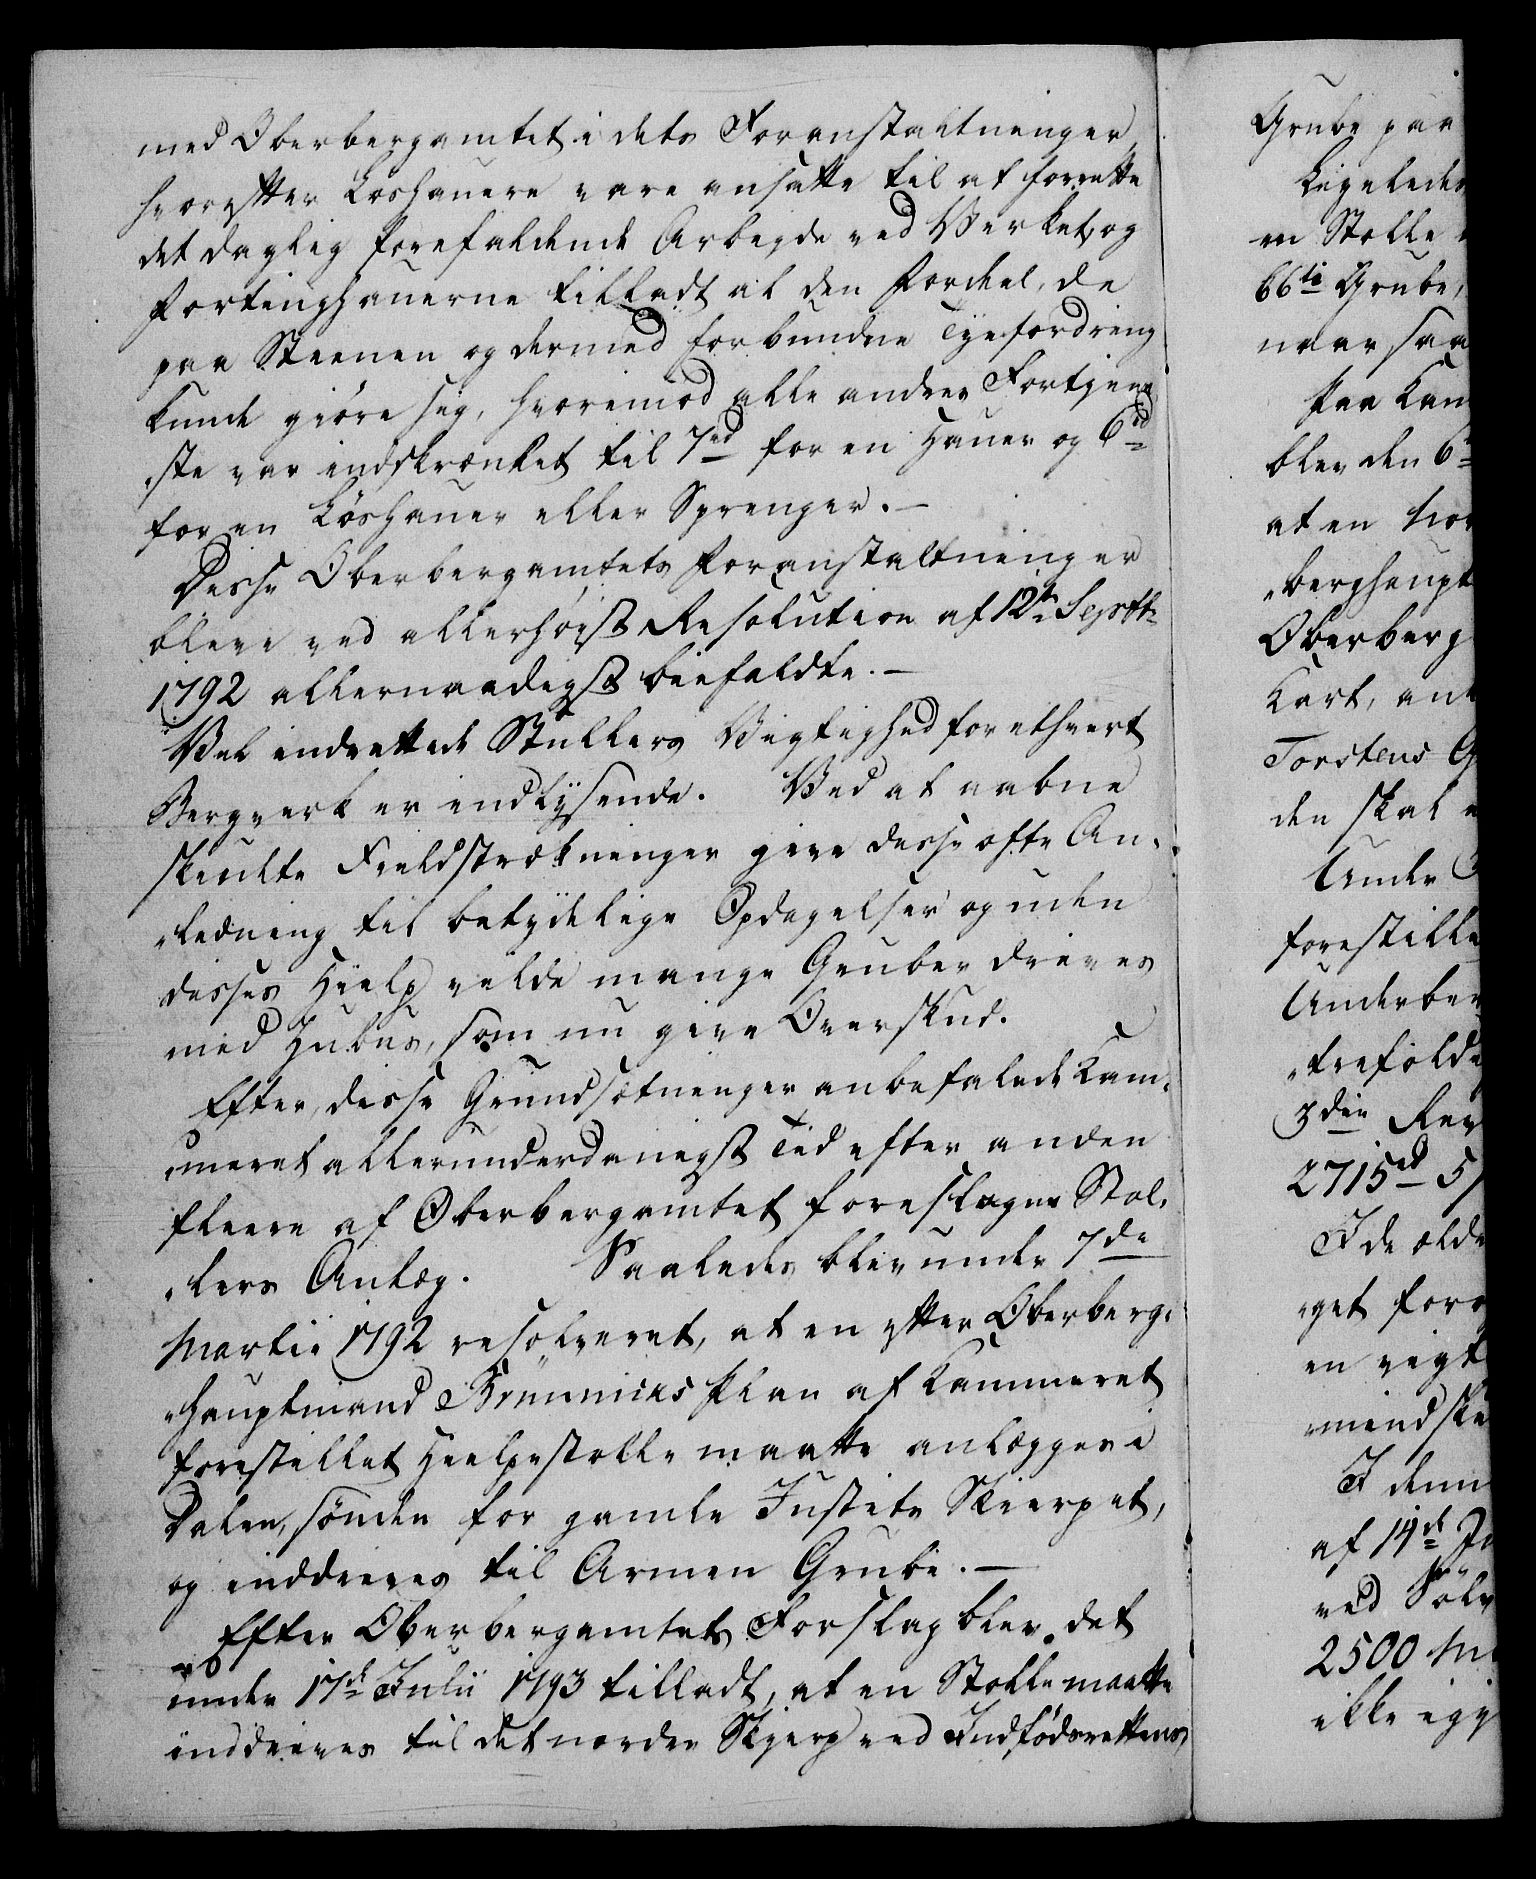 med Oberbergamtet i dets Foranstaltninger
hvorefter Løshauere vare ansatte til at forrette
det daglig forefaldende Arbeyde ved Verket, og
fortinghauerne tilladt al den Fordeel, de
paa Steenen og dermed forbundne Tyefordring
kunde giöre sig, hvoremod alle andres Fortjene
„ste var indskrænket til 7rd for en Hauer og 6rd
for en Löshauer eller Sprenger. —
Disse Oberbergamtets foranstaltninger
bleve ved allerhöist Resolution af 12te Septbr
1792 allernaadigst biefaldte. —
Vel indrettede Stollers Vigtighed for ethvert
Bergverk er indlysende. Ved at aabne
skiulte Fieldstrækninger give disse ofte An„
„ledning til betydelige Opdagelser og uden
disses Hielp vilde mange Gruber drives
med Zubus, som nu give Overskud.
Efter disse Grundsætninger anbefalede Kam„
„meret allerunderdanigst Tid efter anden
fleere af Oberbergamtet foreslagne Stol„
„lers Anlæg. Saaledes blev under 7de
Martii 1792 resolveret, at en efter Oberberg„
„hauptmand Brünnichs Plan af Kammeret
forestillet Hielpestolle maatte anlægges i
Dalen, sönden for gamle Justits Skierpet,
og inddrives til Armen Grube. —
Efter Oberbergamtets Forslag blev det
under 17de Julii 1793 tilladt, at en Stolle maatte
inddrives til det nordre Skjerp ved Indfödsrettens
Grube paa
Ligeledes
en Stolle
66te Grube,
naar saa
Paa Kam
blev den 6
at en
„berghaupt
Oberberg
Kart, an
Torstens G
den skal
Under 3
forestille
Underber
„trefolde
3die Rev
2715rd 5
I de ælde
„get for
en vigt
„mindske
I denn
af 14de J
ved Sölv
2500 M
ikke igj